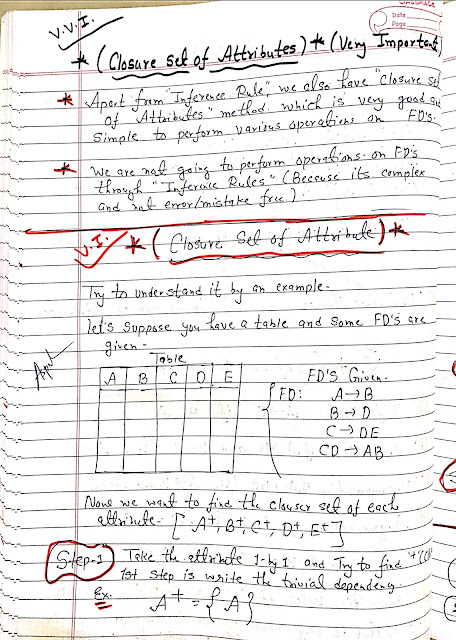 CLASSMATE
Date
Page
V.V.I.
* (Closure set of Attributes) * (Very Important)
* Apart form "Inference Rule" we also have "Closure set
of Attributes" method. which is very good and
Simple to perform various operations on FD's.
* We are not going to perform operations. on FD's
through "Inference Rules" (Because its complex
and not error/mistake free).
V.I.
* (Closure Set of Attribute) *
Try to understand it by an example-
let's suppose you have a table and some FD's are
given-
Table
A B C D E
FD'S Given-
FD: A→B
B→D
C→DE
CD→AB
Now we want to find the clouser set of each
attribute- [A+, B+, C+, D+, E+]
Step-1 Take the attribute 1-by 1 and Try to find '+'
1st step is write the trivial dependeny
Ex. A+ = {A}